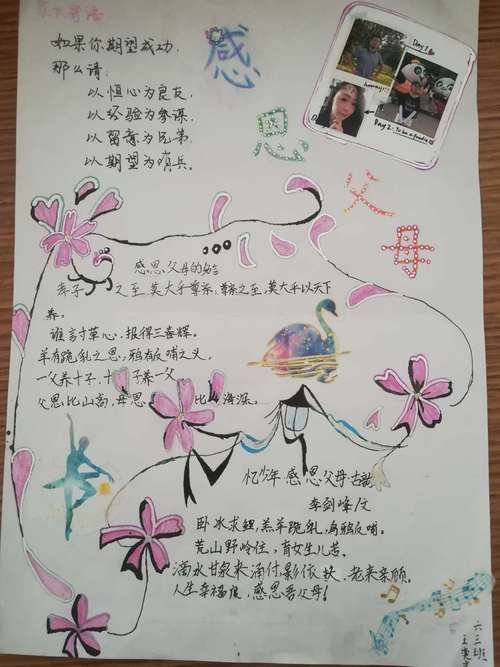 家长寄语
如果你期望成功，
那么请：
以恒心为良友，
以经验为参谋，
以留意为兄弟，
以期望为哨兵。
感恩父母
Day 1
hooray!!!
Day 2: To be a foodie
感恩父母的名言
孝子之至，莫大乎尊亲，尊亲之至，莫大乎以天下
养。
谁言寸草心，报得三春辉。
羊有跪乳之恩，鸦有反哺之义。
一父养十子，十子养一父
父恩比山高，母恩比海深。
忆少年 感恩父母
李剑峰/文
卧冰求鲤，羔羊跪乳，乌鸦反哺。
荒山野岭住，育女生儿苦。
滴水甘泉来涌付，影依扶、老来亲顾。
人生幸福度，感恩吾父母！
六三班
王